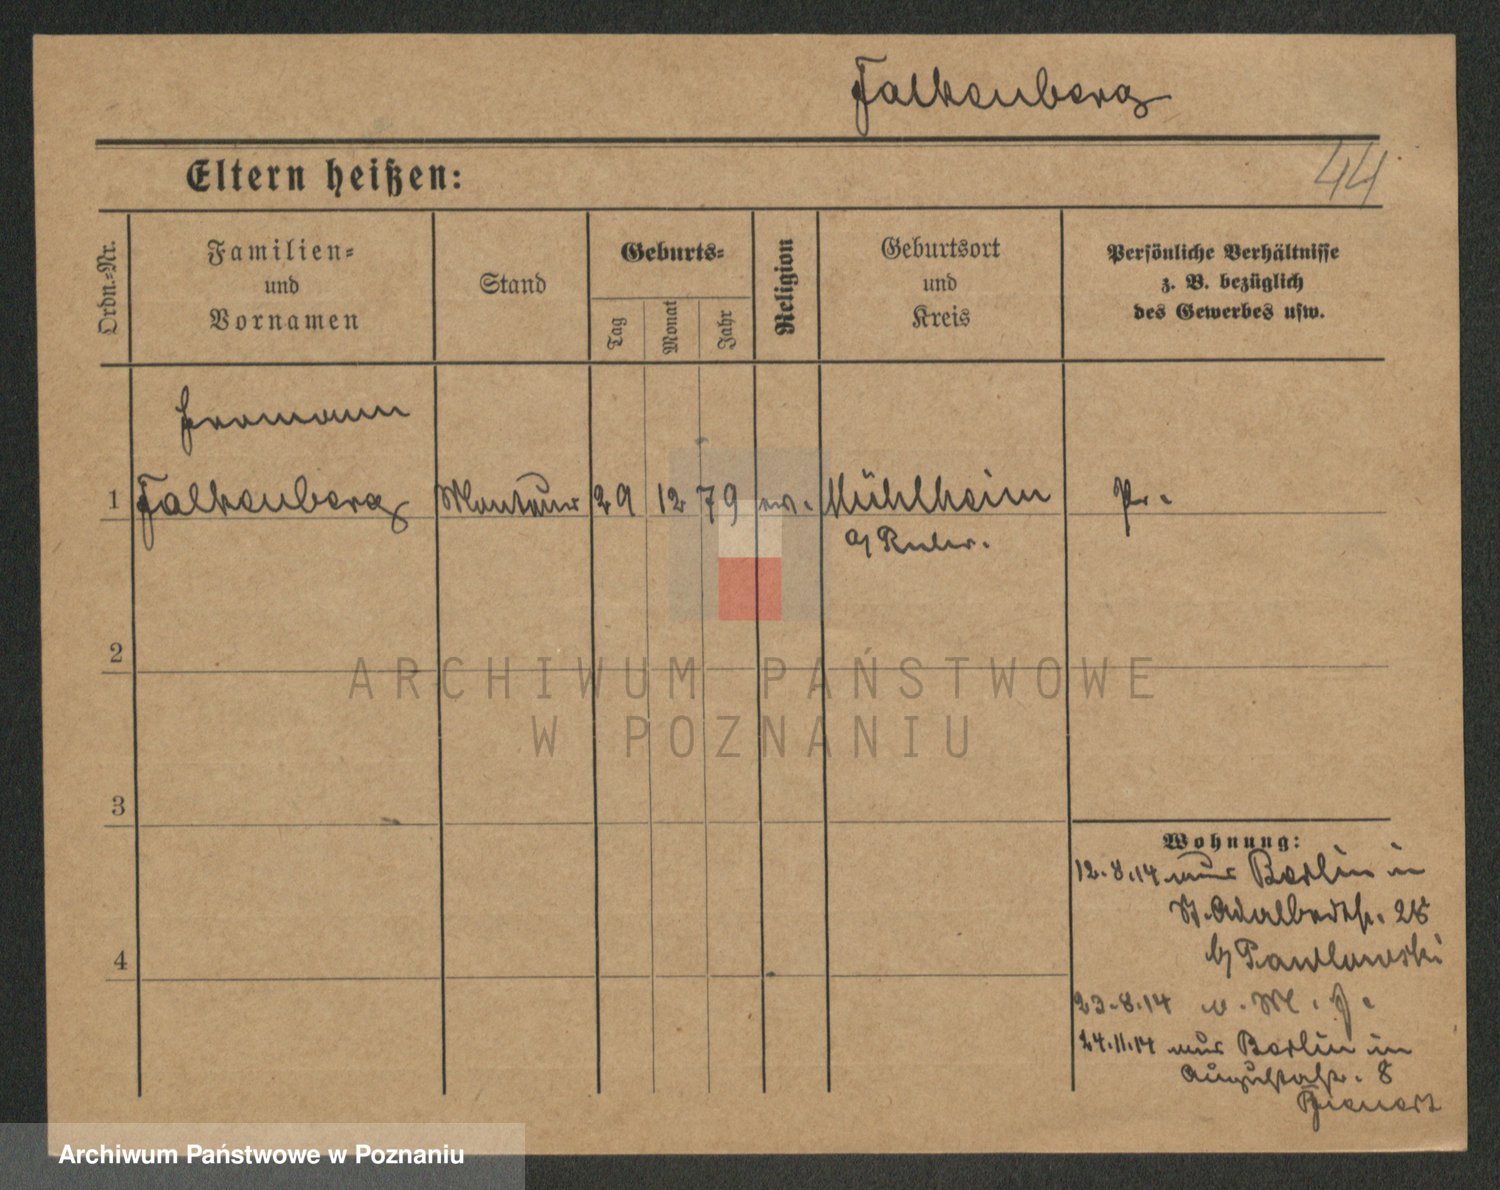 Falkenberg
Eltern heißen:
44
Ordn.-Nr.
Familien-
und
Vornamen
Stand
Geburts-
Tag
Monat
Jahr
Religion
Geburtsort
und
Kreis
Persönliche Verhältnisse
z. B. bezüglich
des Gewerbes usw.
Hermann
1 Falkenberg Monteur 29 12 79 ev. Mühlheim Pr.
a/ Ruhr.
2
3
4
Wohnung:
12.8.14 aus Berlin in
St. Adalbertstr. 28
b/ Pawlowski
23.8.14 v. M. J.
24.11.14 aus Berlin in
Augustastr. 8
ARCHIWUM PAŃSTWOWE
W POZNANIU
Archiwum Państwowe w Poznaniu